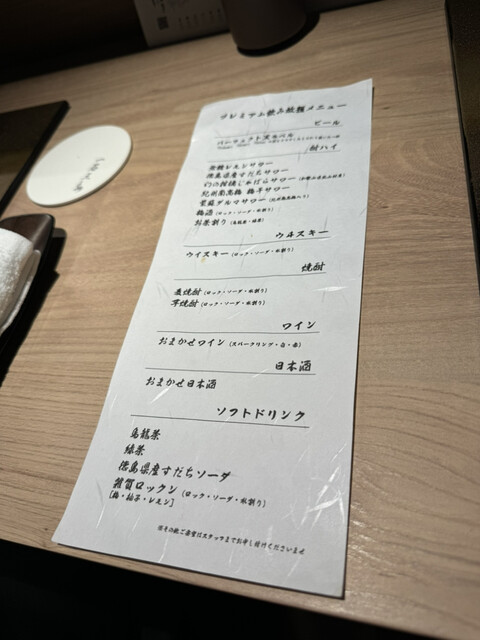 プレミアム飲み放題メニュー
ビール
パーフェクト黒ラベル
酎ハイ
レモンサワー
徳島県産すだちサワー
幻の柑橘じゃばらサワー
紀州南高梅 梅干サワー
ダルマサワー
梅酒 (ロック・ソーダ・水割り)
お茶割り (烏龍茶・緑茶)
ウイスキー
ウイスキー (ロック・ソーダ・水割り)
焼酎
麦焼酎 (ロック・ソーダ・水割り)
芋焼酎 (ロック・ソーダ・水割り)
ワイン
おまかせワイン (スパークリング・白・赤)
日本酒
おまかせ日本酒
ソフトドリンク
烏龍茶
緑茶
徳島県産すだちソーダ
雑賀ロックン (ロック・ソーダ・水割り)
[梅・柚子・レモン]
※その他ご要望はスタッフまでお申し付けくださいませ